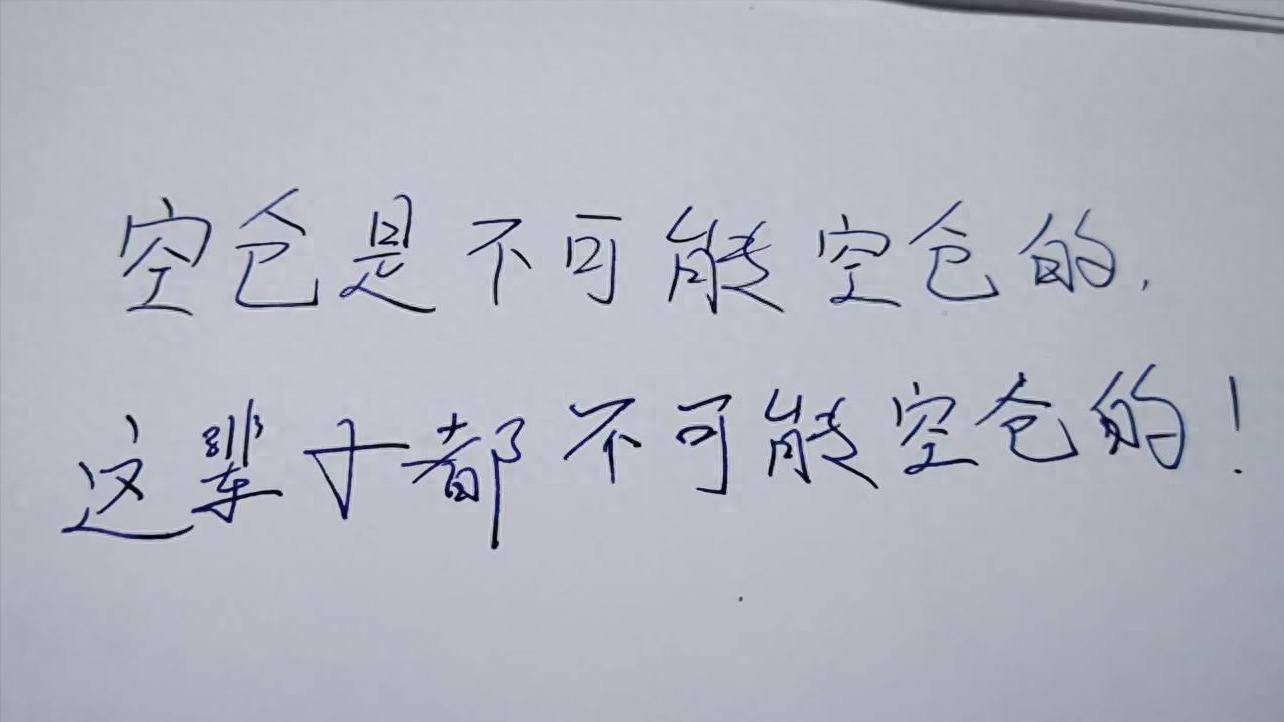 空仓是不可能空仓的,
这辈子都不可能空仓的!